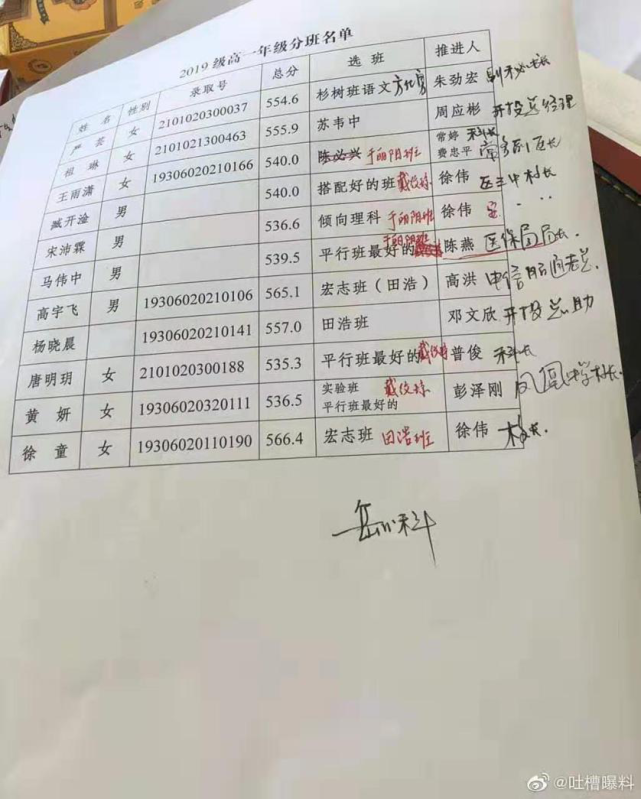 2019级高一年级分班名单
姓名 性别 录取号 总分 选班 推进人
严芸 女 2101020300037 554.6 杉树班语文 朱劲宏
祖琳 女 2101021300463 555.9 苏韦中 周应彬 开投总经理
王雨潇 女 19306020210166 540.0 陈必兴 于丽阳班 常婷 科长 费忠平
臧开淦 男 540.0 搭配好的班 徐伟
宋沛霖 男 536.6 倾向理科 于丽阳班 徐伟
马伟中 男 539.5 于丽阳班 平行班最好的 陈燕 医保局局长
高宇飞 男 19306020210106 565.1 宏志班（田浩） 高洪
杨晓晨 19306020210141 557.0 田浩班 邓文欣 开投总助
唐明玥 女 2101020300188 535.3 平行班最好的 普俊 科长
黄妍 女 19306020320111 536.5 实验班 平行班最好的 彭泽刚
徐童 女 19306020110190 566.4 宏志班 田浩班 徐伟 校长.
@吐槽曝料